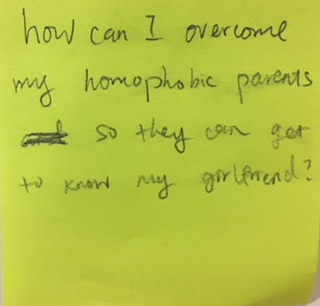 how can I overcome
my homophobic parents
so they can get
to know my girlfriend?